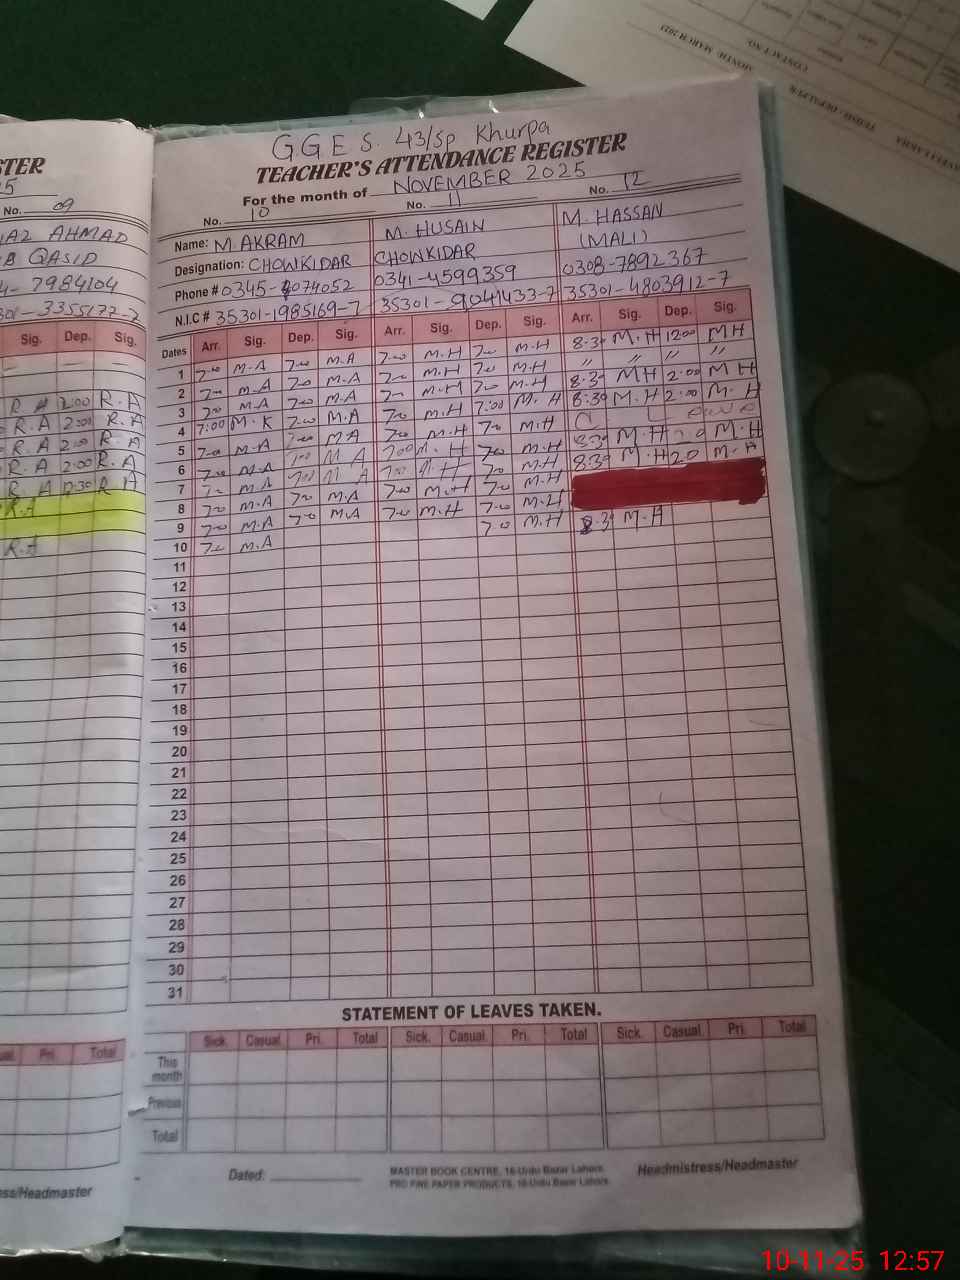 STER
No. 09
AZ AHMAD
QASID
7984104
301-3355172-2
Sig. Dep. Sig.
R.A 2:00 R.A
R.A 2:00 R.A
R.A 2:00 R.A
R.A 2:00 R.A
R.A 12:30 R.A
R.A
R.A
Pri. Total
ss/Headmaster
GGES. 43/SP Khurpa
TEACHER'S ATTENDANCE REGISTER
For the month of NOVEMBER 2025
No. 10 No. 11 No. 12
Name: M. AKRAM M. HUSAIN M. HASSAN
Designation: CHOWKIDAR CHOWKIDAR (MALI)
Phone # 0345-4074052 0341-4599359 0308-7892367
N.I.C # 35301-1985169-7 35301-9041433-7 35301-4803912-7
Dates Arr. Sig. Dep. Sig. Arr. Sig. Dep. Sig. Arr. Sig. Dep. Sig.
1 7:00 M.A 7:00 M.A 7:00 M.H 7:00 M.H 8:30 M.H 12:00 MH
2 7:00 M.A 7:00 M.A 7:00 M.H 7:00 M.H " " " "
3 7:00 M.A 7:00 M.A 7:00 M.H 7:00 M.H 8:30 MH 2:00 MH
4 7:00 M.K 7:00 M.A 7:00 M.H 7:00 M.H 8:30 M.H 2:00 M.H
5 7:00 M.A 7:00 MA 7:00 M.H 7:00 M.H C Leave
6 7:00 M.A 7:00 MA 7:00 M.H 7:00 M.H 8:30 M.H 2:0 M.H
7 7:00 M.A 7:00 MA 7:00 M.H 7:00 M.H 8:30 M.H 2:0 M.H
8 7:00 M.A 7:00 M.A 7:00 M.H 7:00 M.H
9 7:00 M.A 7:00 M.A 7:00 M.H 7:00 M.H
10 7:00 M.A 7:00 M.H 8:30 M.H
11
12
13
14
15
16
17
18
19
20
21
22
23
24
25
26
27
28
29
30
31
STATEMENT OF LEAVES TAKEN.
Sick. Casual Pri. Total Sick. Casual Pri. Total Sick. Casual Pri. Total
This month
Previous
Total
Dated:
MASTER BOOK CENTRE, 16-Urdu Bazar Lahore.
PRO FINE PAPER PRODUCTS, 16-Urdu Bazar Lahore.
Headmistress/Headmaster
MONTH: MARCH 2025
CONTACT NO.
10-11-25 12:57